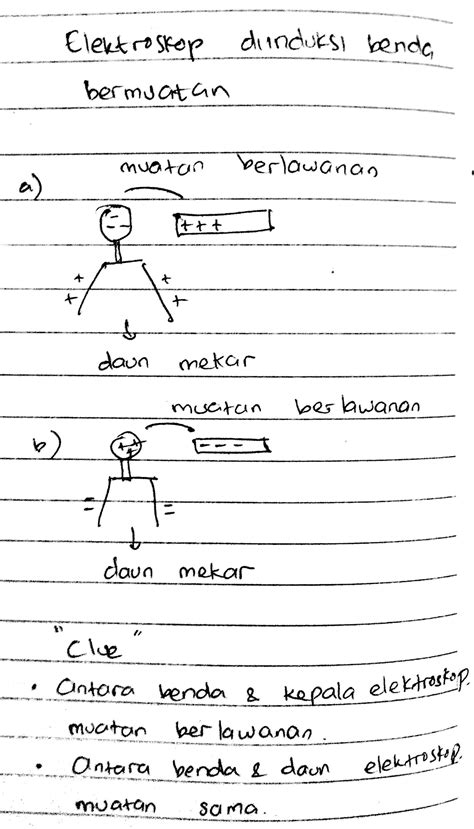 Elektroskop diinduksi benda
bermuatan
muatan berlawanan
a)
- - - -
+ + +
+ +
+ +
daun mekar
muatan berlawanan
b)
+ + + +
- - - -
= =
daun mekar
"Clue"
• Antara benda & kepala elektroskop.
muatan berlawanan.
• Antara benda & daun elektroskop.
muatan sama.